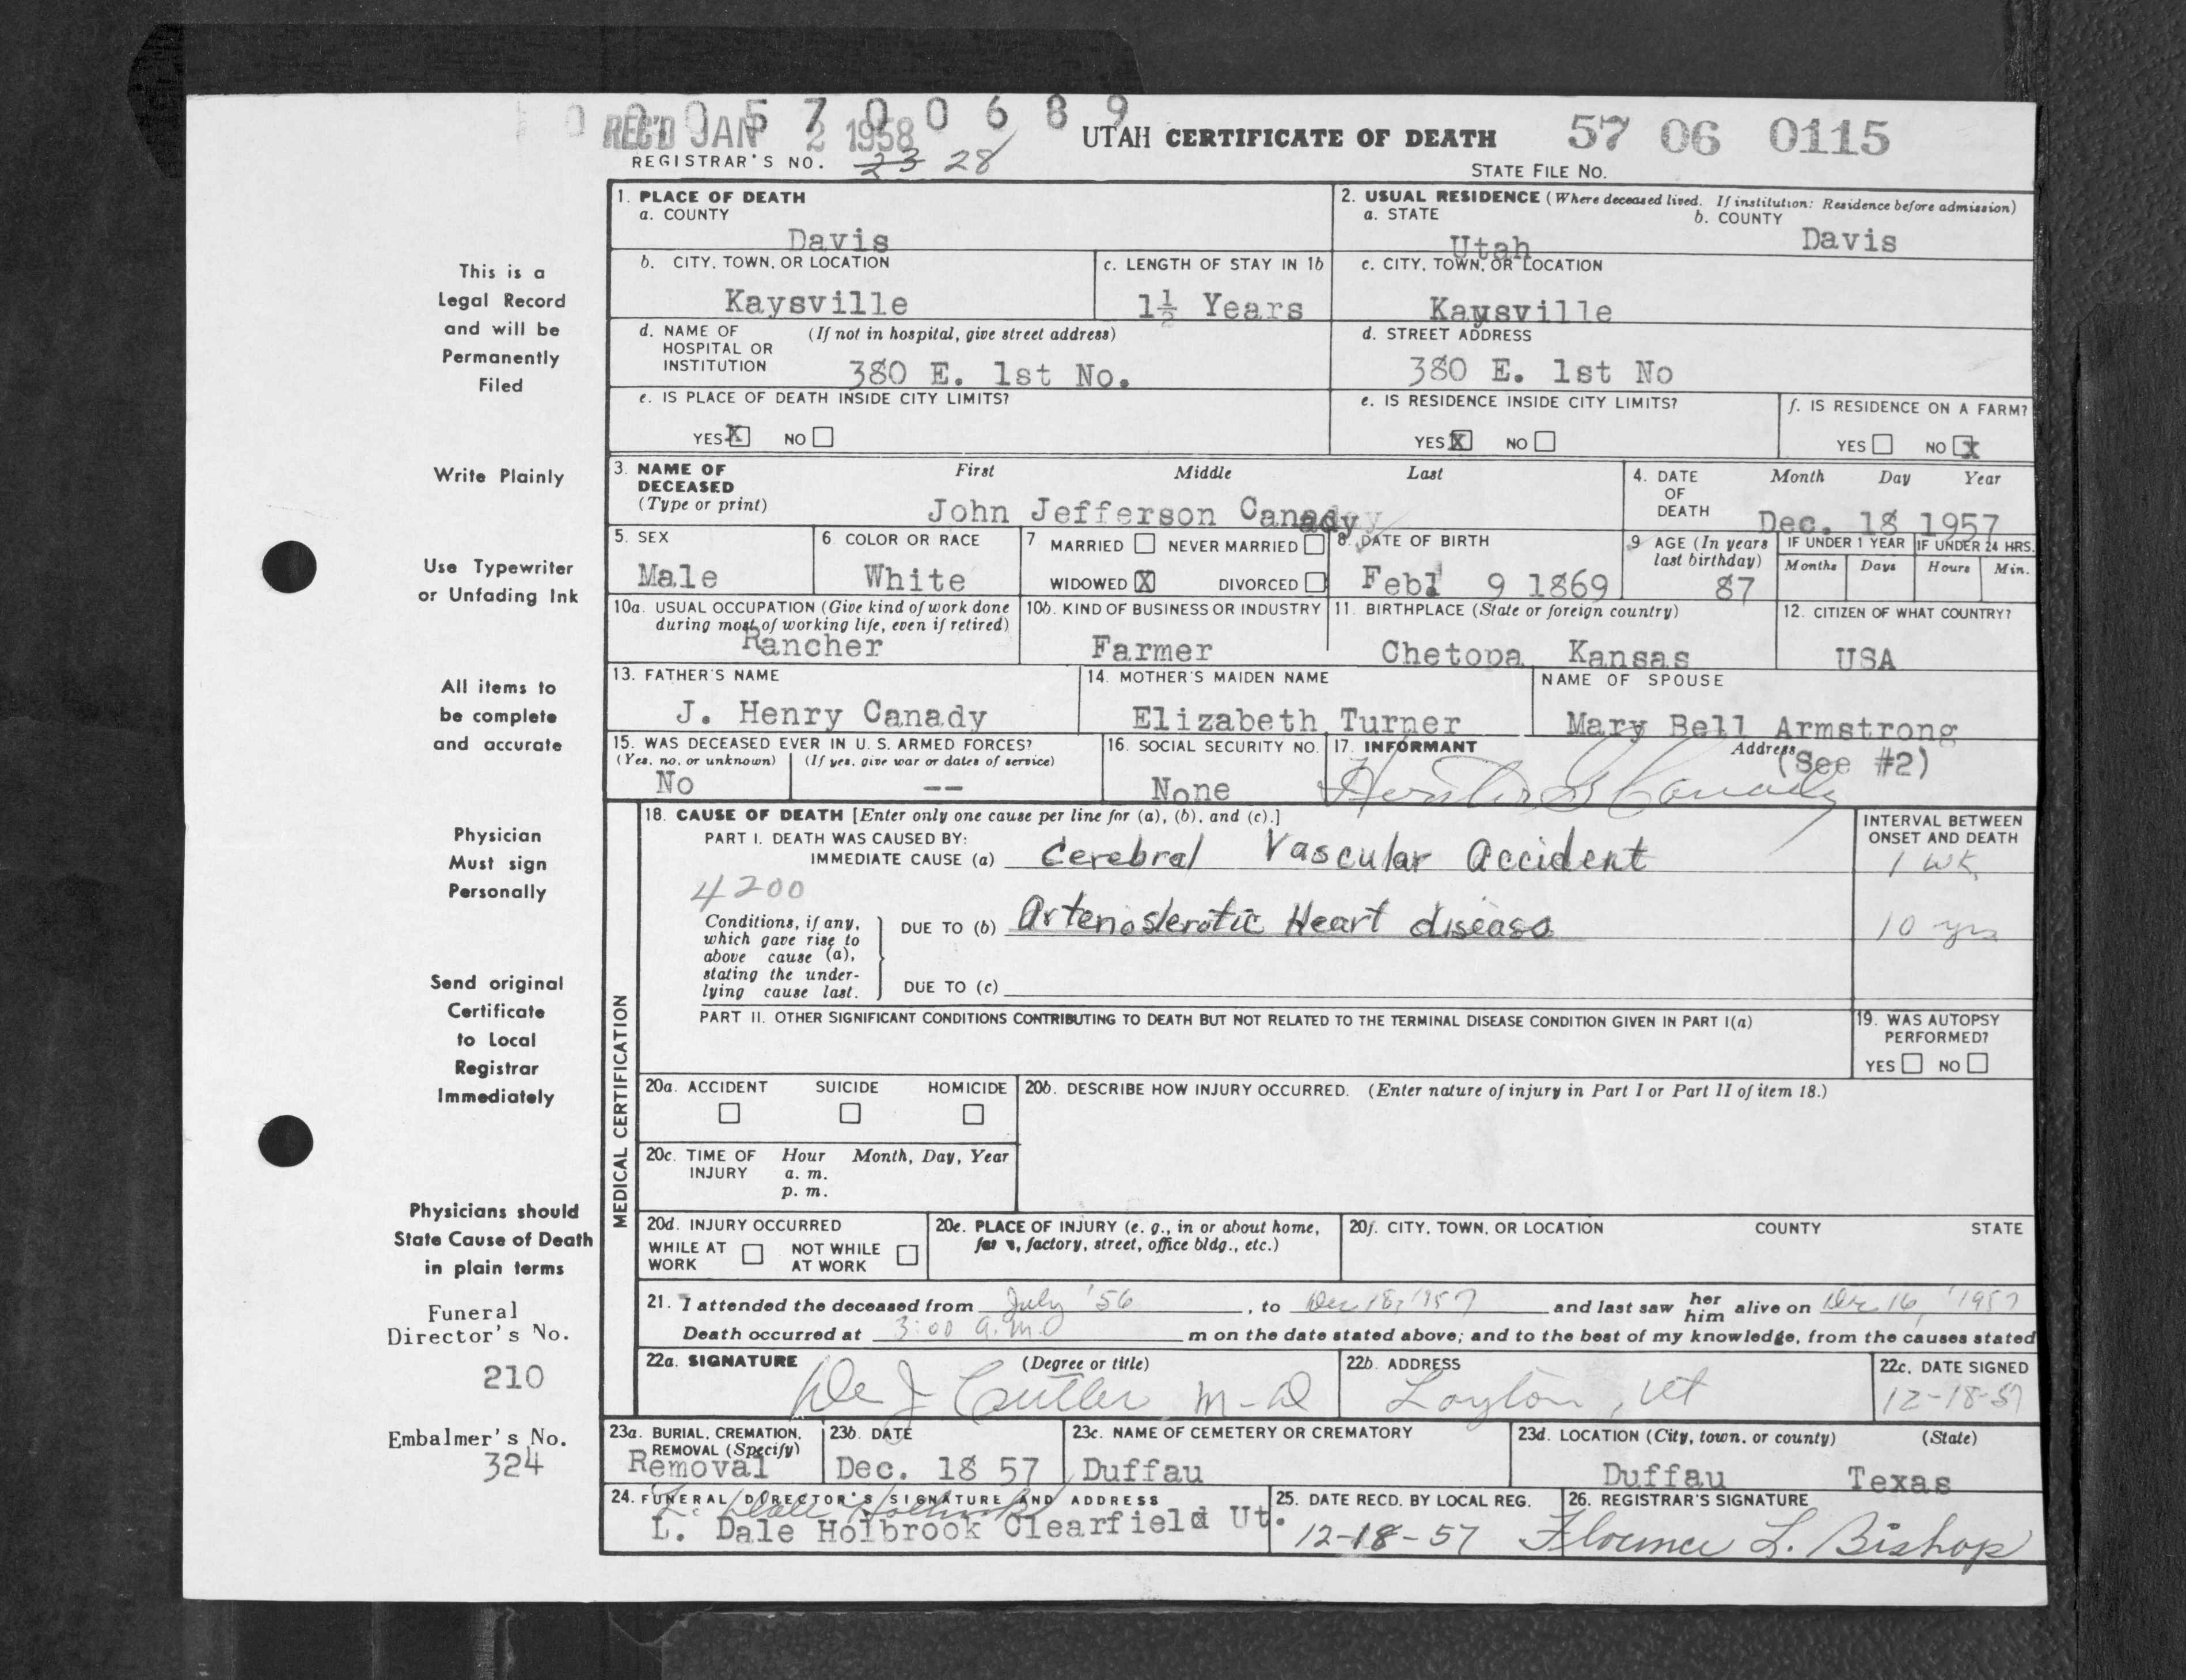 0 0 0 5 7 0 0 6 8 9
REC'D JAN 2 1958
UTAH CERTIFICATE OF DEATH 57 06 0115
REGISTRAR'S NO. 23 28
STATE FILE NO.
This is a
Legal Record
and will be
Permanently
Filed
Write Plainly
Use Typewriter
or Unfading Ink
All items to
be complete
and accurate
Physician
Must sign
Personally
Send original
Certificate
to Local
Registrar
Immediately
Physicians should
State Cause of Death
in plain terms
Funeral
Director's No.
210
Embalmer's No.
324
1. PLACE OF DEATH
a. COUNTY
Davis
2. USUAL RESIDENCE (Where deceased lived. If institution: Residence before admission)
a. STATE b. COUNTY
Utah Davis
b. CITY, TOWN, OR LOCATION
Kaysville
c. LENGTH OF STAY IN 1b
1½ Years
c. CITY, TOWN, OR LOCATION
Kaysville
d. NAME OF (If not in hospital, give street address)
HOSPITAL OR
INSTITUTION
380 E. 1st No.
d. STREET ADDRESS
380 E. 1st No
e. IS PLACE OF DEATH INSIDE CITY LIMITS?
YES X NO
e. IS RESIDENCE INSIDE CITY LIMITS?
YES X NO
f. IS RESIDENCE ON A FARM?
YES NO X
3. NAME OF First Middle Last
DECEASED
(Type or print)
John Jefferson Canady
4. DATE Month Day Year
OF
DEATH
Dec. 18 1957
5. SEX
Male
6. COLOR OR RACE
White
7 MARRIED NEVER MARRIED
WIDOWED X DIVORCED
8. DATE OF BIRTH
Feb. 9 1869
9 AGE (In years
last birthday)
87
IF UNDER 1 YEAR
Months Days
IF UNDER 24 HRS.
Hours Min.
10a. USUAL OCCUPATION (Give kind of work done
during most of working life, even if retired)
Rancher
10b. KIND OF BUSINESS OR INDUSTRY
Farmer
11. BIRTHPLACE (State or foreign country)
Chetopa Kansas
12. CITIZEN OF WHAT COUNTRY?
USA
13. FATHER'S NAME
J. Henry Canady
14. MOTHER'S MAIDEN NAME
Elizabeth Turner
NAME OF SPOUSE
Mary Bell Armstrong
15. WAS DECEASED EVER IN U. S. ARMED FORCES?
(Yes, no, or unknown) (If yes, give war or dates of service)
No --
16. SOCIAL SECURITY NO.
None
17. INFORMANT Address
(See #2)
Canady
MEDICAL CERTIFICATION
18. CAUSE OF DEATH [Enter only one cause per line for (a), (b), and (c).]
PART I. DEATH WAS CAUSED BY:
IMMEDIATE CAUSE (a) Cerebral Vascular Accident
INTERVAL BETWEEN
ONSET AND DEATH
1 wk
4200
Conditions, if any,
which gave rise to
above cause (a),
stating the under-
lying cause last.
DUE TO (b) Arteriosclerotic Heart disease
10 yrs
DUE TO (c)
PART II. OTHER SIGNIFICANT CONDITIONS CONTRIBUTING TO DEATH BUT NOT RELATED TO THE TERMINAL DISEASE CONDITION GIVEN IN PART I(a)
19. WAS AUTOPSY
PERFORMED?
YES NO
20a. ACCIDENT SUICIDE HOMICIDE
20b. DESCRIBE HOW INJURY OCCURRED. (Enter nature of injury in Part I or Part II of item 18.)
20c. TIME OF Hour Month, Day, Year
INJURY a. m.
p. m.
20d. INJURY OCCURRED
WHILE AT NOT WHILE
WORK AT WORK
20e. PLACE OF INJURY (e. g., in or about home,
farm, factory, street, office bldg., etc.)
20f. CITY, TOWN, OR LOCATION COUNTY STATE
21. I attended the deceased from July '56, to Dec 18, 1957 and last saw her him alive on Dec 16, 1957
Death occurred at 3:00 a.m. m on the date stated above; and to the best of my knowledge, from the causes stated
22a. SIGNATURE (Degree or title)
Cutler M-D
22b. ADDRESS
Layton, Ut
22c. DATE SIGNED
12-18-57
23a. BURIAL, CREMATION,
REMOVAL (Specify)
Removal
23b. DATE
Dec. 18 57
23c. NAME OF CEMETERY OR CREMATORY
Duffau
23d. LOCATION (City, town, or county) (State)
Duffau Texas
24. FUNERAL DIRECTOR'S SIGNATURE AND ADDRESS
L. Dale Holbrook
L. Dale Holbrook Clearfield Ut.
25. DATE RECD. BY LOCAL REG.
12-18-57
26. REGISTRAR'S SIGNATURE
Florence L. Bishop